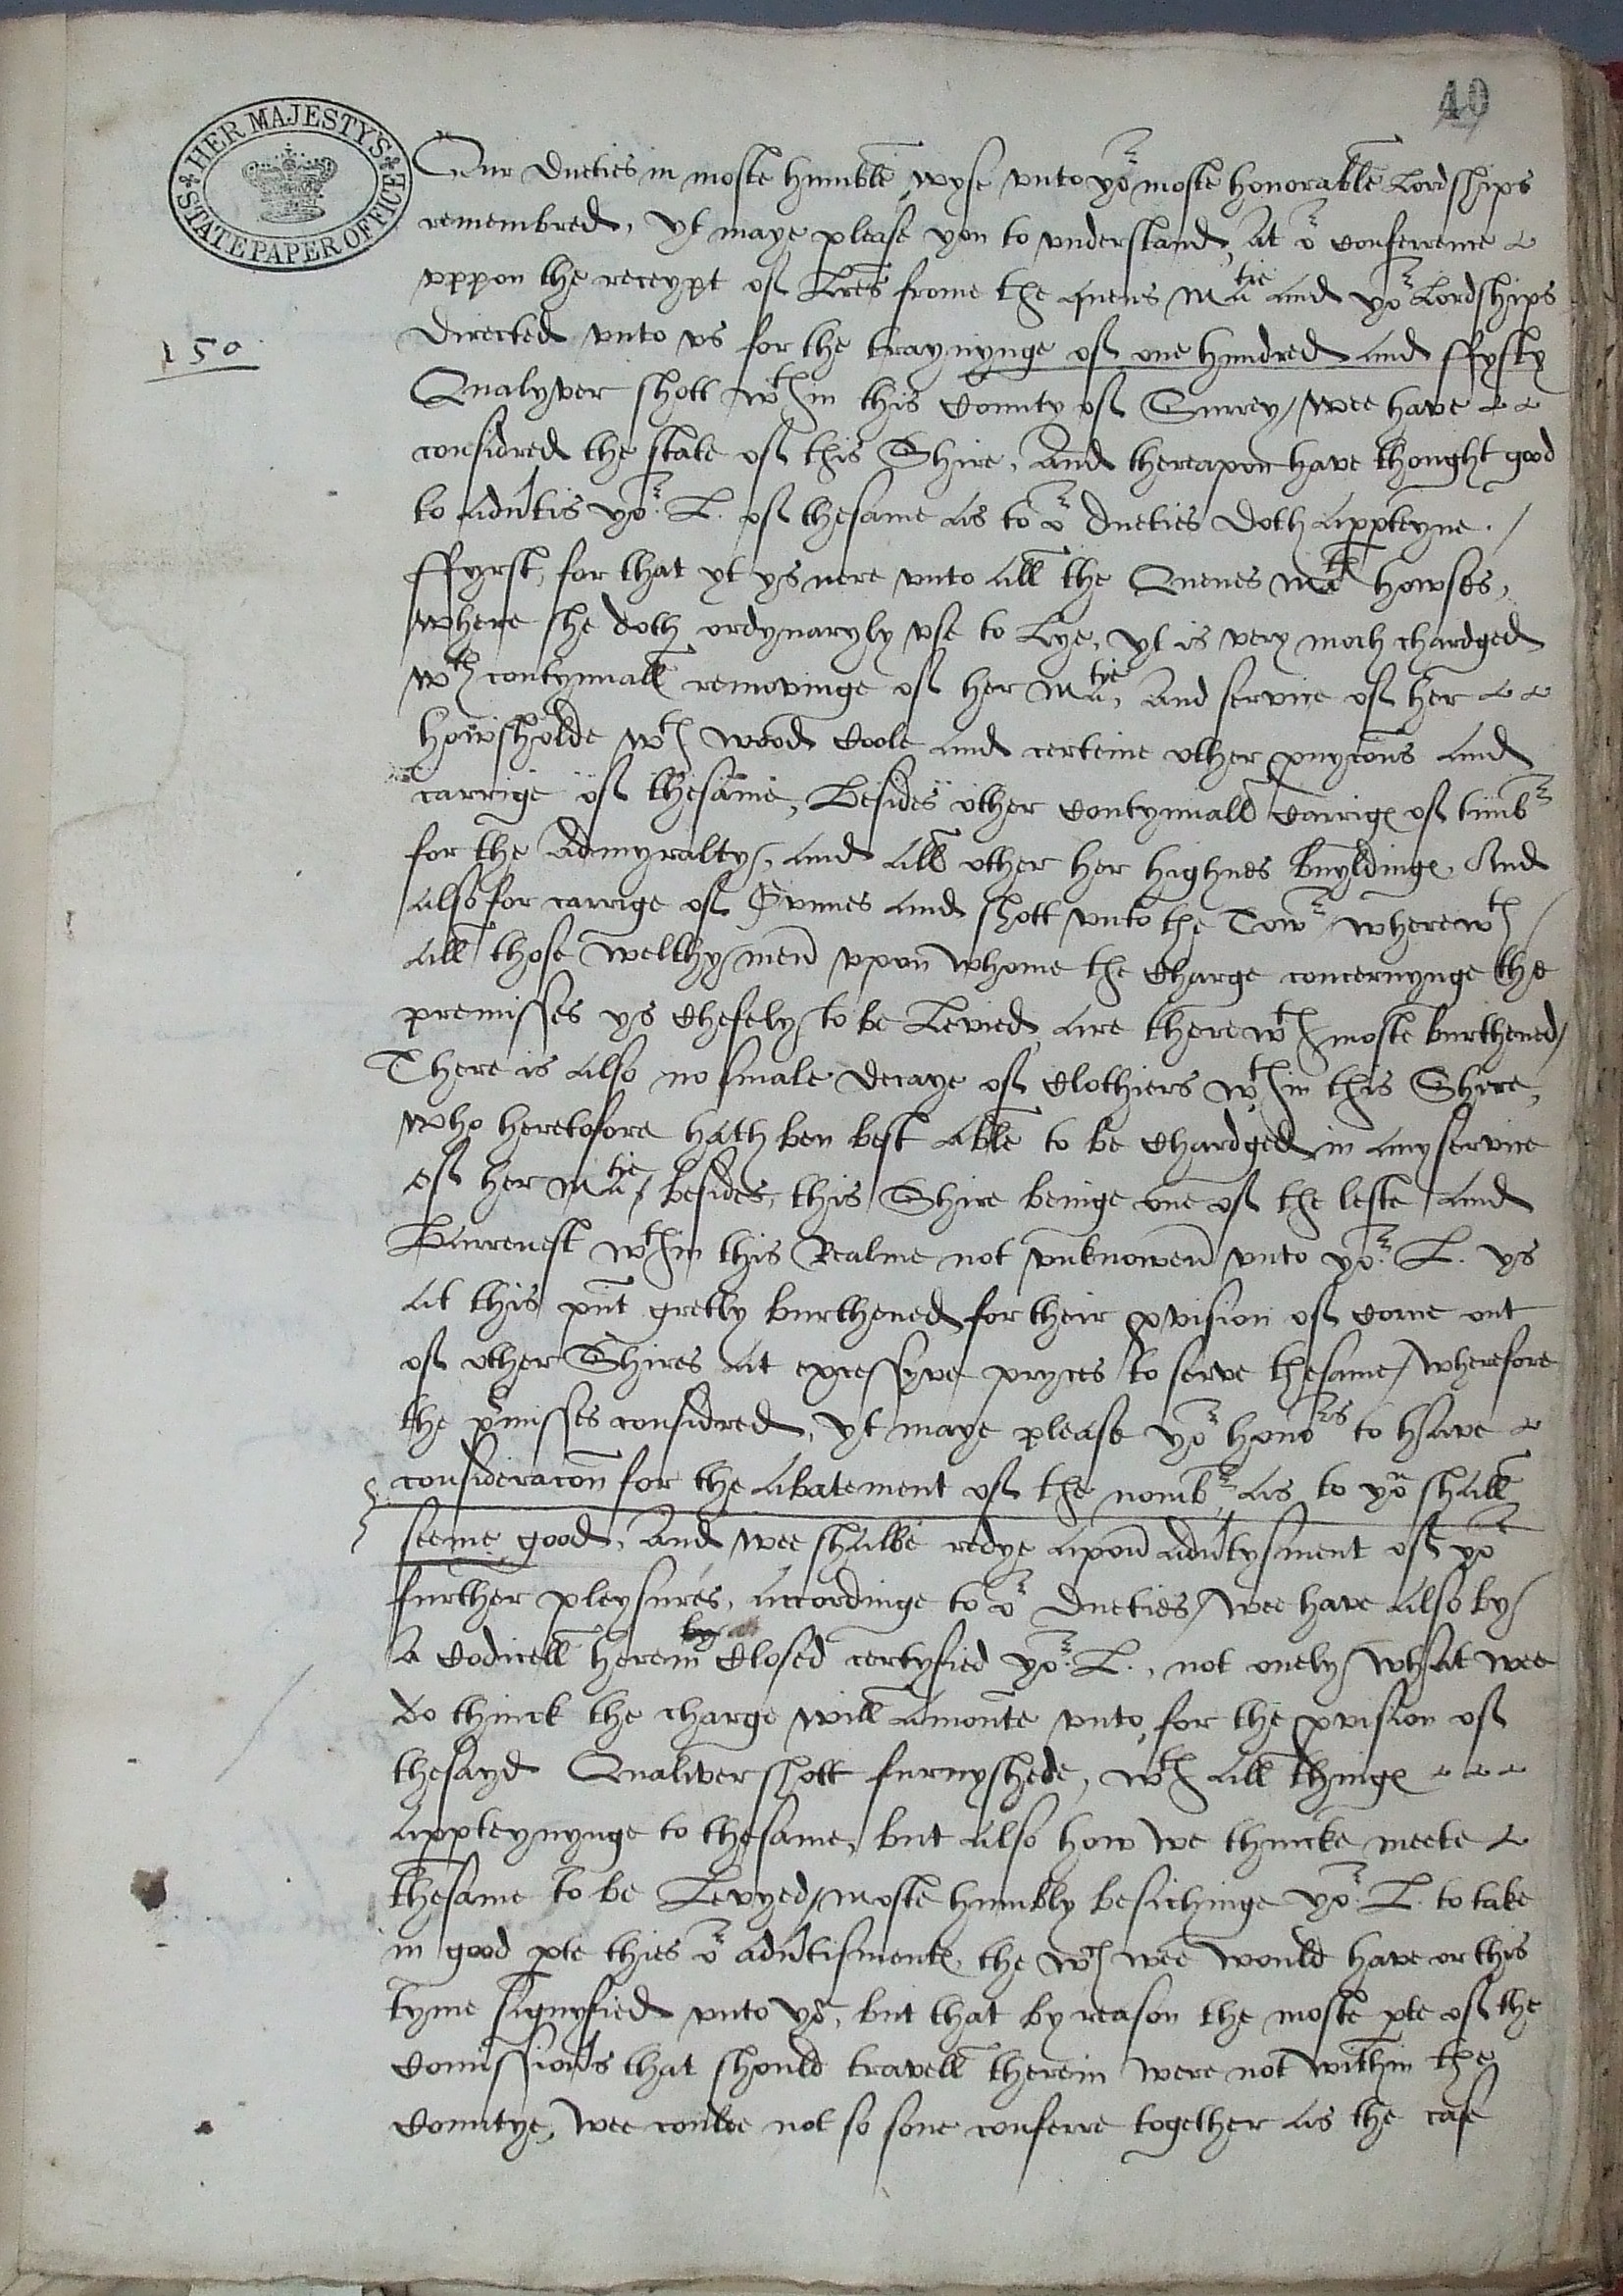 40
HER MAJESTY'S
STATE PAPER OFFICE
Our dueties in moste humble wyse vnto yor moste honorable Lordships
remembred, yt maye please you to vnderstand, at or conferrence
vppon the receypt of Lres frome the quens Matie and yor Lordships
directed vnto vs for the traynynge of one hundred and ffyfty
150
Qualyver shott wth in this County of Surrey / wee have
considred the state of this Shire, And thereapon have thought good
to aduˀtis yor L. of thesame as to or dueties doth appˀteyne. /
ffyrst, for that yt ys nere vnto all the Quenes Mats howses,
where she doth ordynaryly vse to Lye, yt is very moch chardged
wth contynuall removinge of her Matie, And service of her
howsholde wth wood Coole and certeine other pˀuycons and
carrige of thesame, Besides other Contynuall Carrige of timbr
for the Admyralty, and all other her highnes buyldinge, And
also for carrige of Gvnnes and shott vnto the Towr wherewth
all those welthy men vpon whome the Charge concernynge the
premisses ys Chefely to be Levied are therewth moste burthened /
There is also no smale decaye of Clothiers wth in this Shire,
who heretofore hath ben best able to be Chardged in any service
of her Matie / besides, this Shire beinge one of the leste and
Barrenest wth in this Realme not vnknowen vnto yor L. ys
at this pˀnt gretly burthened for their pˀvision of Corne out
of other Shires at excessyve pryces to serve thesame / wherefore
the pˀmisses considred, yt maye please yor honors to have
consideracon for the abatement of the nombr, as to yow shall
seeme good, And wee shalbe redye apon aduˀtysment of yor
further pleysures, accordinge to or dueties / wee have also by
a Codicell herein Closed certyfied yor L., not onely what wee
do thinck the charge will amonte vnto, for the pˀvision of
thesayd Qualiver shott furnyshede, wth all things
appˀteynynge to thesame, but also how we thincke meete
thesame to be Levyed / moste humbly besichinge yor L. to take
in good pˀte thies or aduˀtismente, the wch wee would have or this
tyme signyfied vnto yow, but that by reason the moste pˀte of the
Comissionˀs that should travell therein were not within the
Countye, wee coulde not so sone conferre together as the case